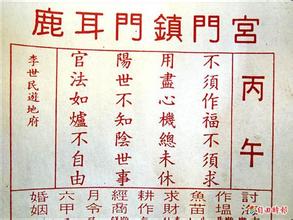 鹿耳門鎮門宮
丙午
不須作福不須求
用盡心機總未休
陽世不知陰世事
官法如爐不自由
李世民遊地府
討
作塭
魚苗
求財
耕作
經商
月令
六甲
婚姻
自由時報